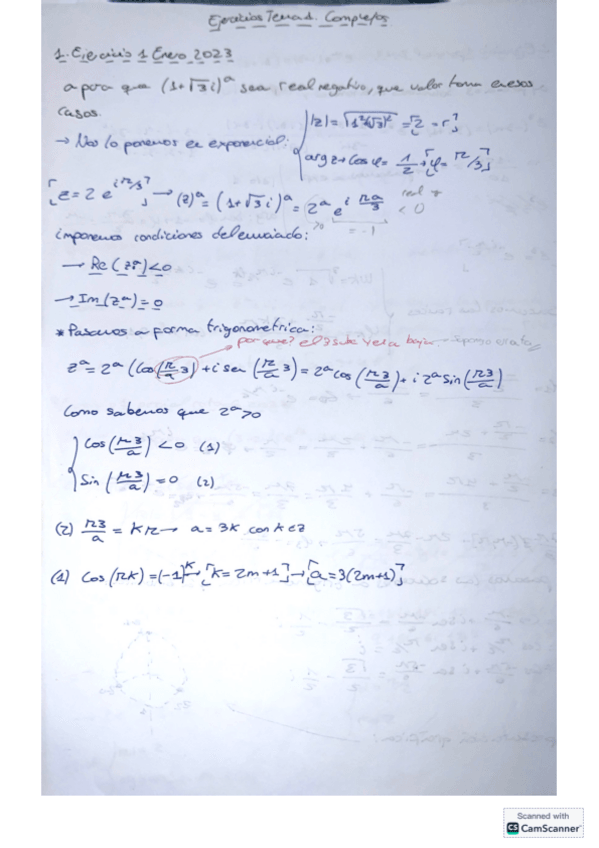 Ejercicios Tema 1. Complejos
1. Ejercicio 1 Enero 2023
a para que (1+√3i)^a sea real negativo, que valor toma en esos
casos.
→ Nos lo ponemos en exponencial: { |z| = √(1²(√3)²) = 2 = r
arg z → cos φ = 1/2 → φ = π/3
z = 2 e^(iπ/3) → (z)^a = (1+√3i)^a = 2^a e^(i πa/3) real < 0
>0 = -1
imponemos condiciones del enunciado:
→ Re(z^a) < 0
→ Im(z^a) = 0
* Pasamos a forma trigonometrica:
porque? el 3 sube y el a baja
z^a = 2^a (cos(π/a 3) + i sen(π/a 3) = 2^a cos(π3/a) + i 2^a sin(π3/a)
Como sabemos que 2^a > 0
{ cos(π3/a) < 0 (1)
sin(π3/a) = 0 (2)
(2) π3/a = kπ → a = 3k con k ∈ Z
(1) cos(πk) = (-1)^k → [k = 2m+1] → [a = 3(2m+1)]
Scanned with
CS CamScanner